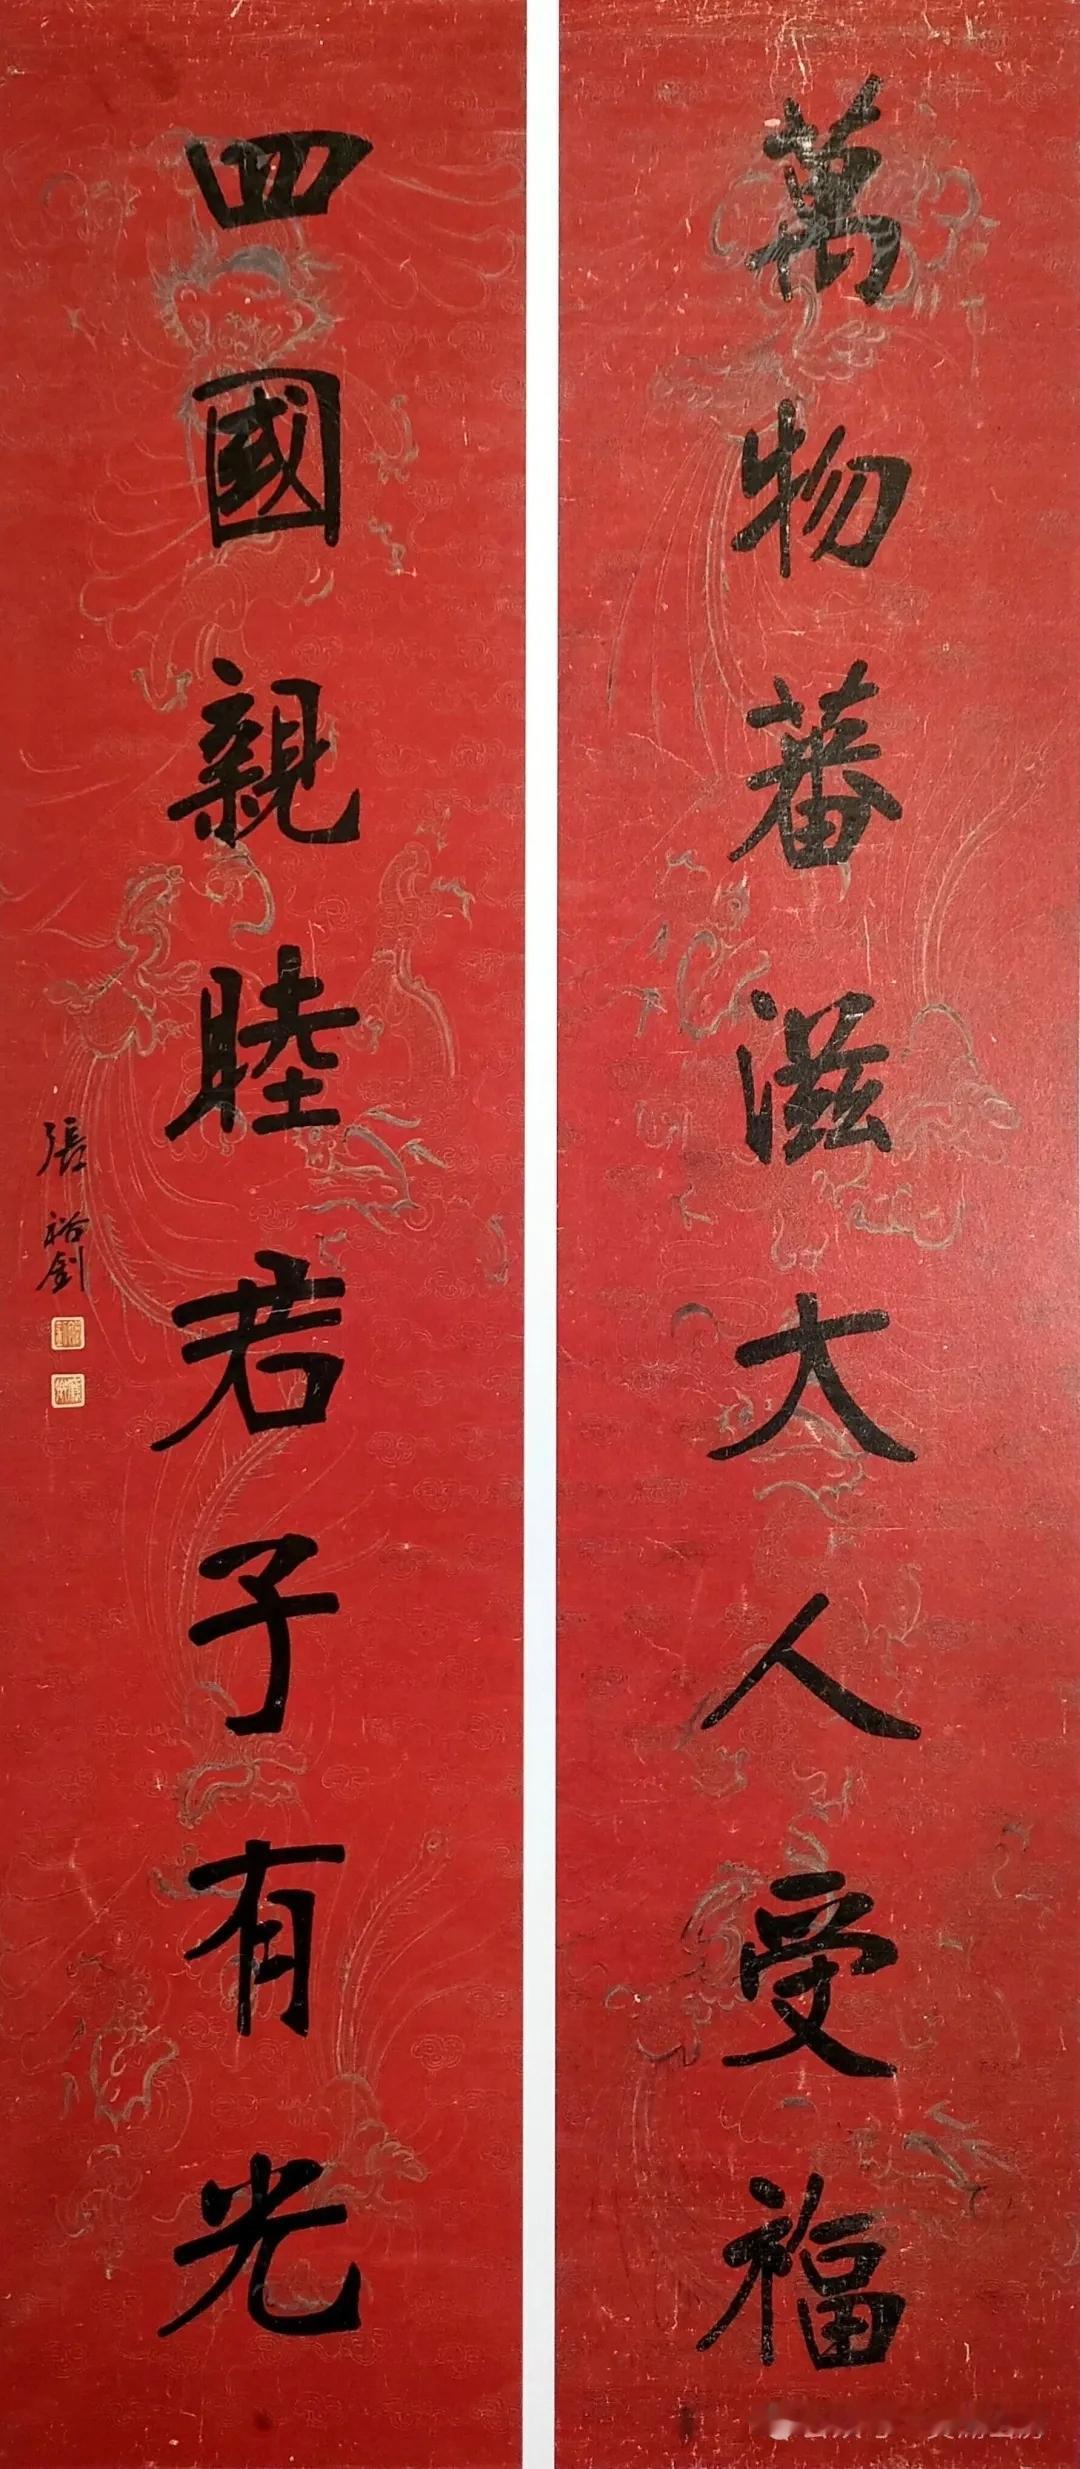 萬物蕃滋大人受福
四國親睦君子有光
張裕釗